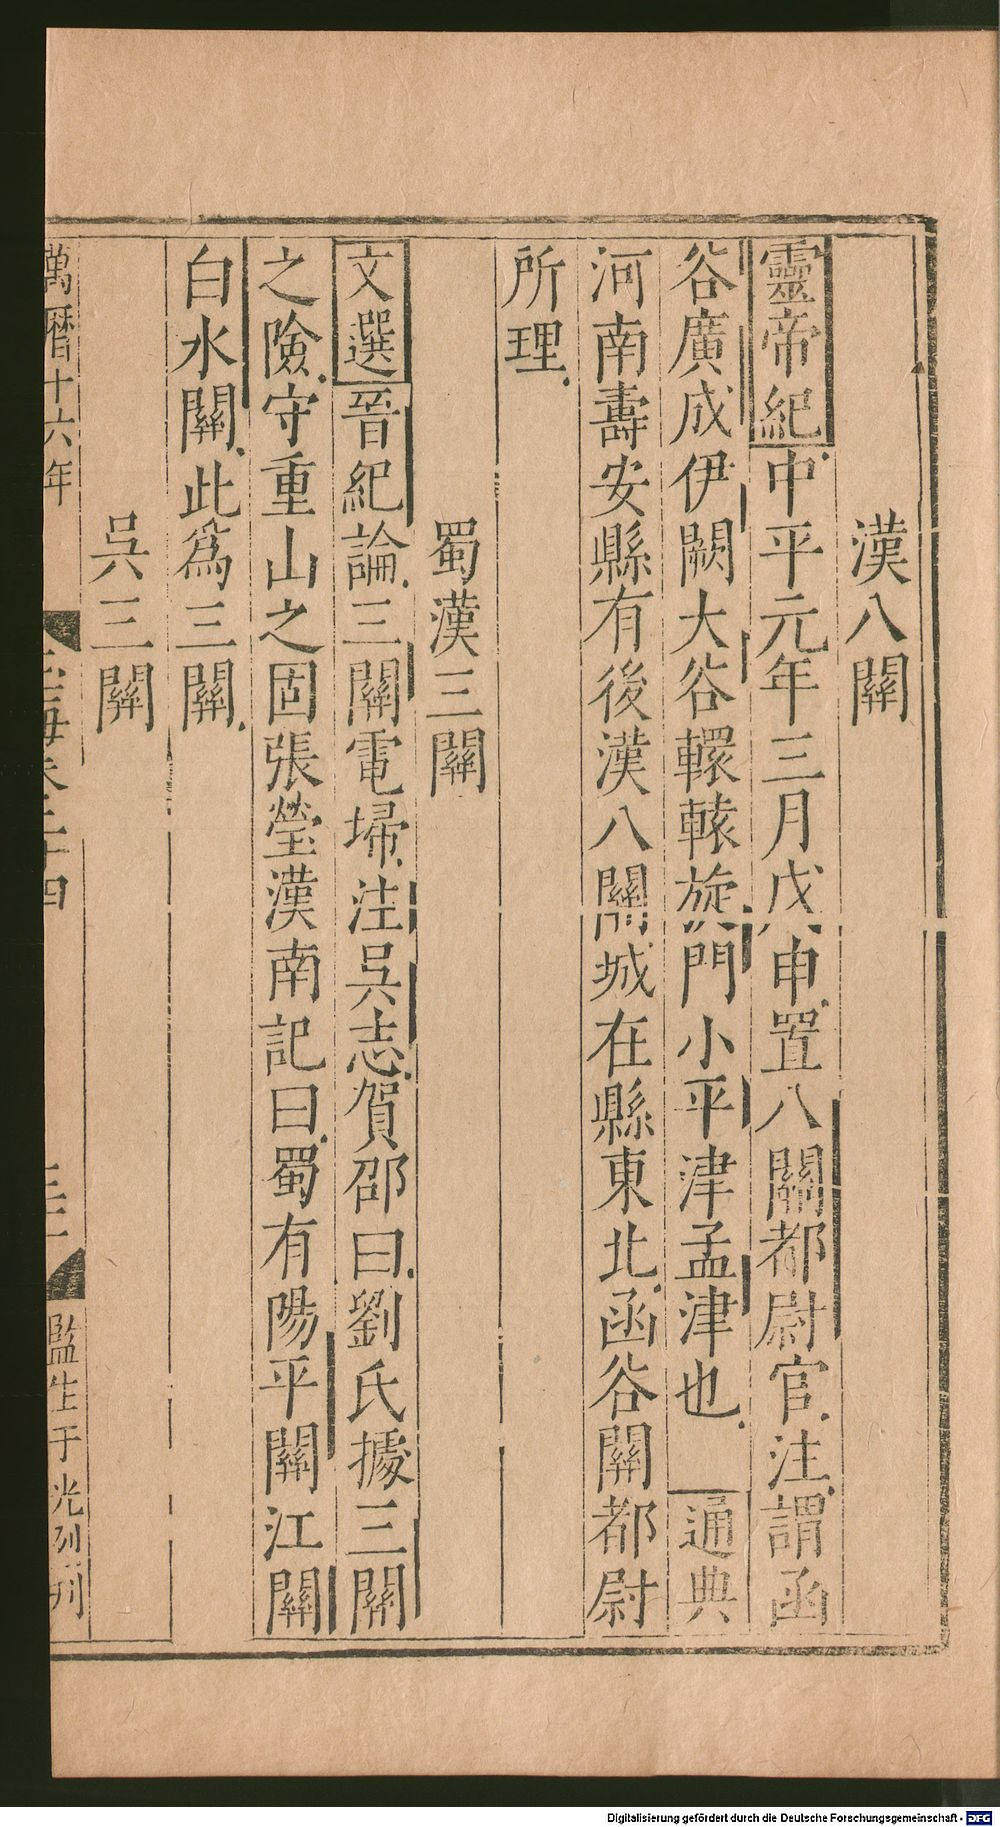 漢八關
靈帝紀中平元年三月戊申置八關都尉官注謂函
谷廣成伊闕大谷轘轅旋門小平津孟津也 通典
河南壽安縣有後漢八關城在縣東北函谷關都尉
所理
蜀漢三關
文選晉紀論三關電埽注吳志賀邵曰劉氏據三關
之險守重山之固張瑩漢南記曰蜀有陽平關江關
白水關此爲三關
吳三關
萬曆十六年 玉海卷二十四 監生于光列刊
Digitalisierung gefördert durch die Deutsche Forschungsgemeinschaft - DFG